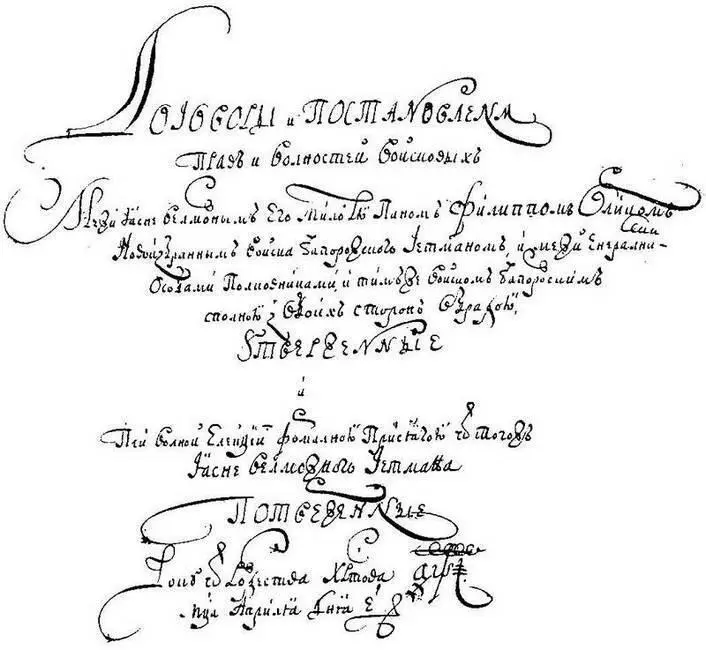 Договоры и Постановленя
Правъ и волностей войсковыхъ
Межи Ясне велможнымъ Его Милостю Паномъ Филиппомъ Орликомъ
Новоизбраннымъ войска Запорожского Гетманомъ, и межи Енералними
Особами Полковниками, и тимъ же войскомъ Запорожскимъ
сполною з обоихъ сторонъ обрадою,
Утверженные
и
При волной Елекцiй формалною Присягою ѿ тогожъ
Ясне велможного Гетмана
Потверженные
Року ѿ Рожества Хрстова ҂аѱі
мсца Априля дня е҃